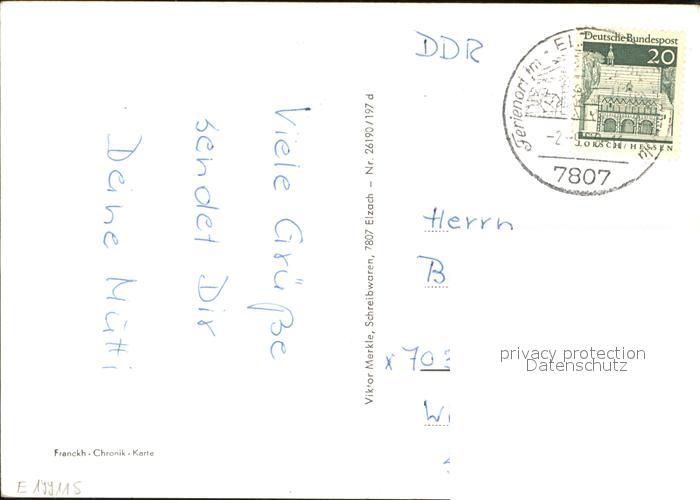 DDR
Deutsche Bundespost
20
LORSCH/HESSEN
Ferienort im
7807
Viele Grüße
sendet Dir
Deine Mutti
Viktor Merkle, Schreibwaren, 7807 Elzach – Nr. 26190/197 d
Herrn
B
x 703
privacy protection
Datenschutz
W
Franckh-Chronik-Karte
E 19911S